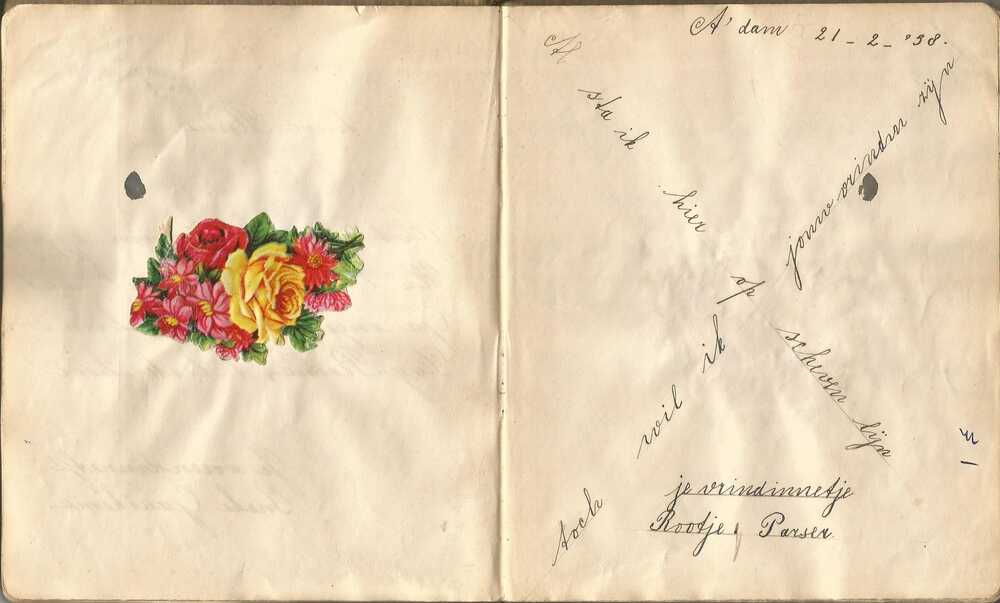 A'dam 21-2-'38.
Al
sta ik
hier
op
scheven lijn
toch
wil
ik
jouw vrindin zijn
je vrindinnetje
Rootje Parser